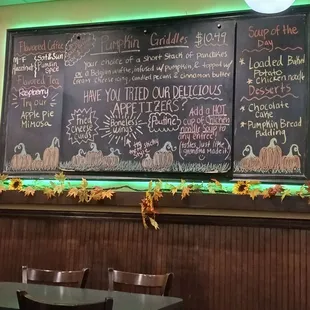 Flavored Coffee
M-F
Sat & Sun
Hazelnut
Pumpkin
Spice
Flavored Tea
Raspberry
Try our
Apple Pie
Mimosa
Pumpkin Griddles $10.49
Your choice of a Short Stack of Pancakes
or a Belgian waffle, infused w/ pumpkin, & topped w/
Cream Cheese icing, candied pecans & cinnamon butter
HAVE YOU TRIED OUR DELICIOUS
APPETIZERS?
fried
cheese
boneless
wings
Add a HOT
cup of Chicken
noodle Soup to
any entree!
Soup of the
Day
Loaded Baked
Potato
Chicken noodle
Desserts
Chocolate
Cake
Pumpkin Bread
Pudding